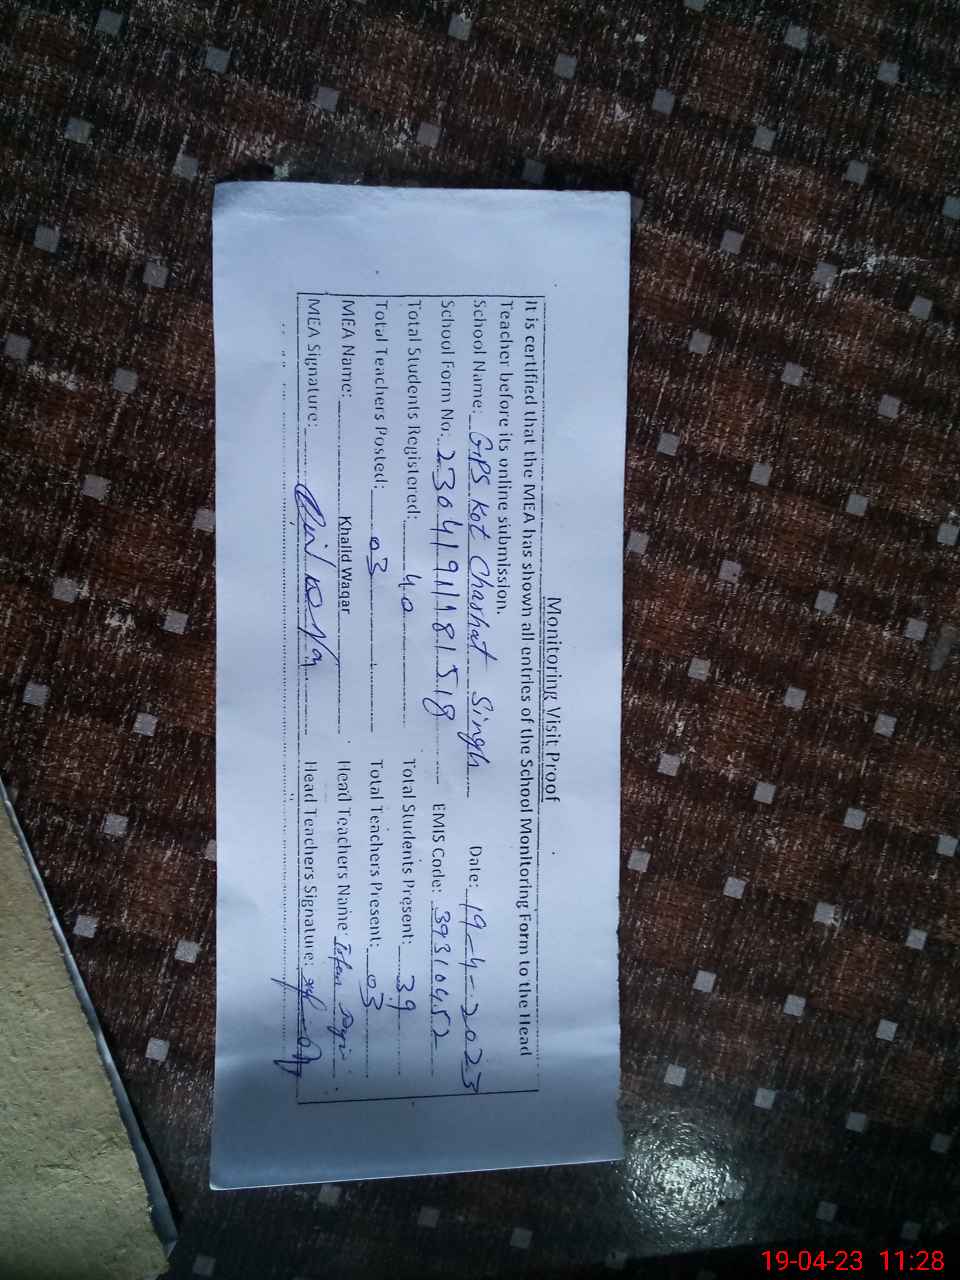 Monitoring Visit Proof
It is certified that the MEA has shown all entries of the School Monitoring Form to the Head
Teacher before its online submission.
School Name: GPS Kot Charhat Singh Date: 19-4-2023
School Form No: 230419111181518 EMIS Code: 39310452
Total Students Registered: 40 Total Students Present: 39
Total Teachers Posted: 03 Total Teachers Present: 03
MEA Name: Khalid Waqar Head Teachers Name:
MEA Signature: Head Teachers Signature:
19-04-23 11:28